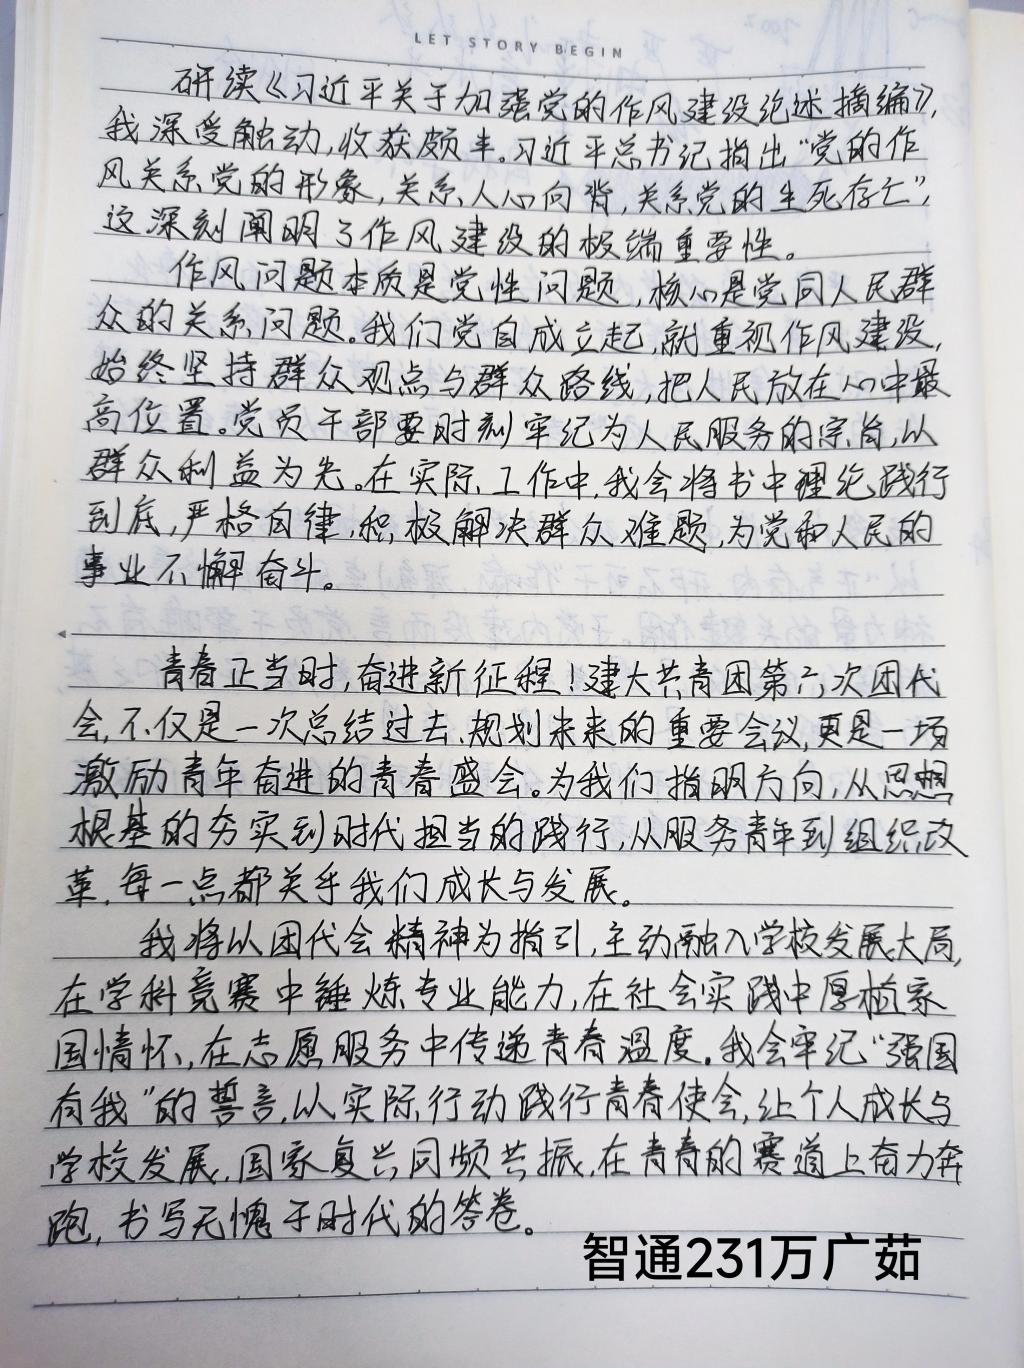 LET STORY BEGIN
研读《习近平关于加强党的作风建设论述摘编》,
我深受触动,收获颇丰。习近平总书记指出“党的作
风关系党的形象,关系人心向背,关系党的生死存亡”,
这深刻阐明了作风建设的极端重要性。
作风问题本质是党性问题,核心是党同人民群
众的关系问题。我们党自成立起,就重视作风建设,
始终坚持群众观点与群众路线,把人民放在心中最
高位置。党员干部要时刻牢记为人民服务的宗旨,以
群众利益为先。在实际工作中,我会将书中理论践行
到底,严格自律,积极解决群众难题,为党和人民的
事业不懈奋斗。
青春正当时,奋进新征程!建大共青团第六次团代
会,不仅是一次总结过去、规划未来的重要会议,更是一场
激励青年奋进的青春盛会。为我们指明方向,从思想
根基的夯实到时代担当的践行,从服务青年到组织改
革,每一点都关乎我们成长与发展。
我将以团代会精神为指引,主动融入学校发展大局,
在学科竞赛中锤炼专业能力,在社会实践中厚植家
国情怀,在志愿服务中传递青春温度。我会牢记“强国
有我”的誓言,以实际行动践行青春使命,让个人成长与
学校发展、国家复兴同频共振,在青春的赛道上奋力奔
跑,书写无愧于时代的答卷。
智通231万广茹